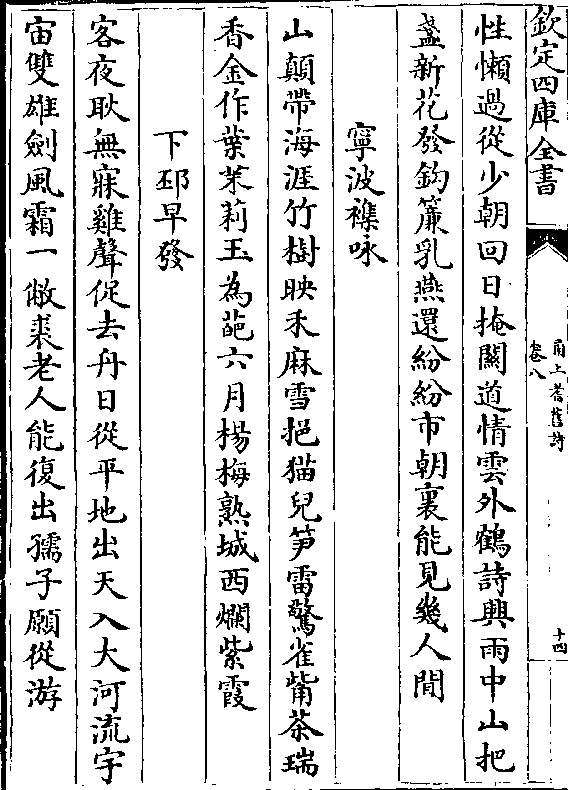 欽定四庫全書
甬上耆舊詩
卷八
十四
性懶過從少朝回日掩關道情雲外鶴詩興雨中山把
盞新花發鈎簾乳燕還紛紛市朝裏能見幾人閒
寧波襍咏
山顛帶海涯竹樹映禾麻雪挹猫兒笋雷驚雀觜茶瑞
香金作葉茉莉玉為葩六月楊梅熟城西爛紫霞
下邳早發
客夜耿無寐雞聲促去舟日從平地出天入大河流宇
宙雙雄劍風霜一敝裘老人能復出孺子願從游